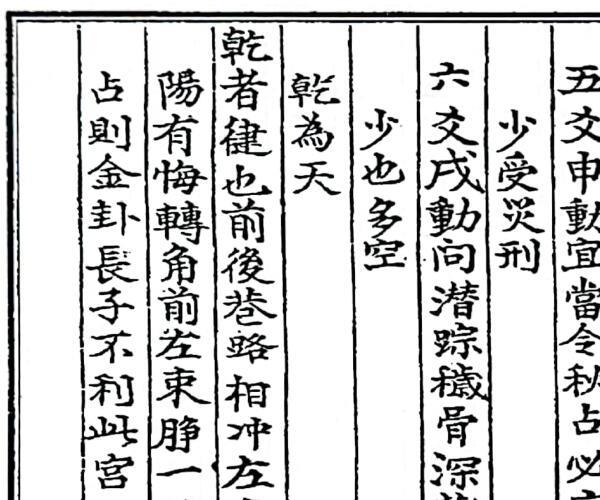 五爻申動宜當令秋占必
少受災刑
六爻戌動向潛踪穢骨深
少也多空
乾為天
乾者健也前後巷路相冲左
陽有悔轉角前左束脖一
占則金卦長子不利此宮